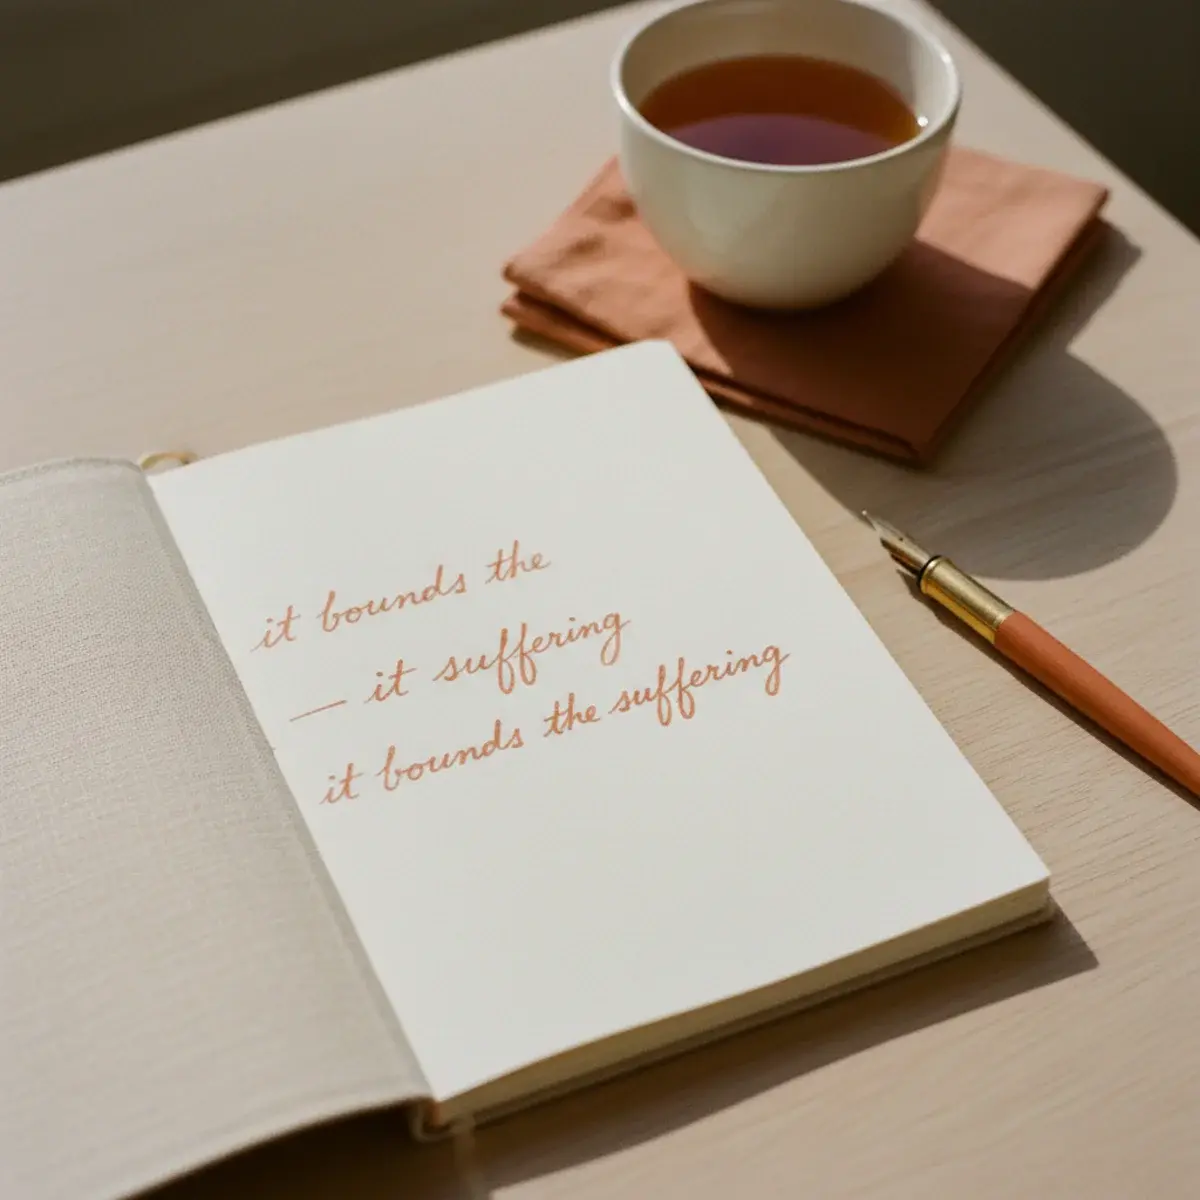 it bounds the
— it suffering
it bounds the suffering